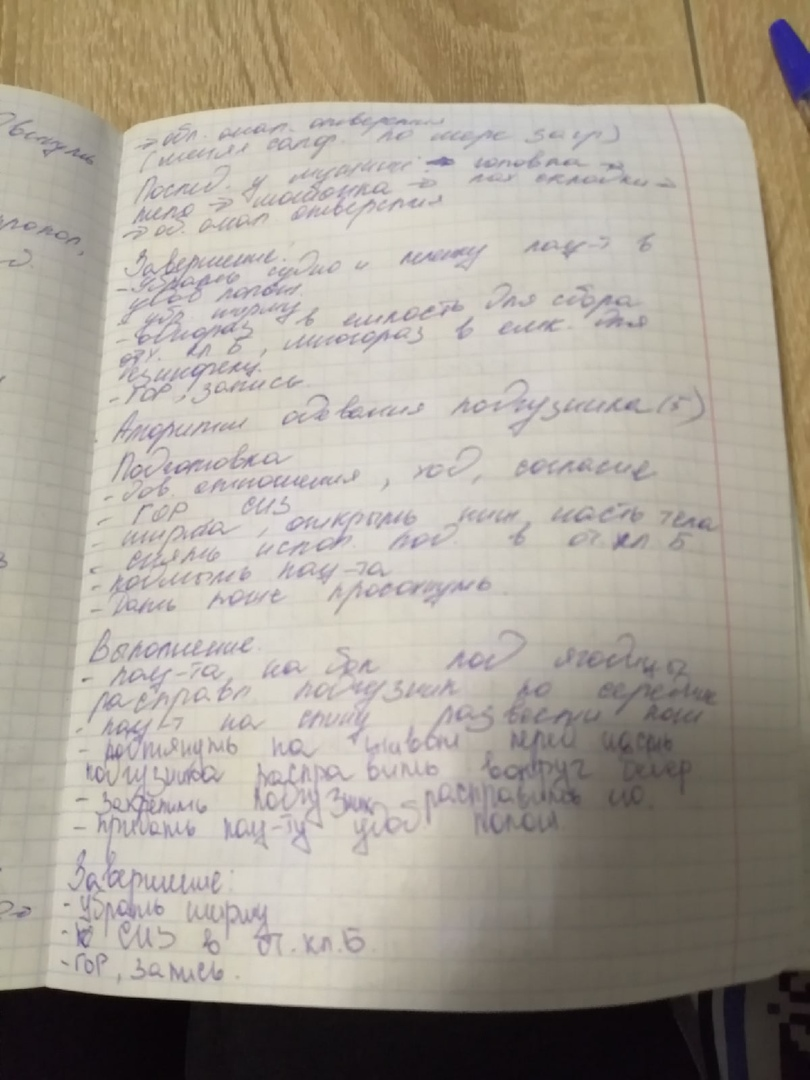 Двинуть
→ обл. анал. отверстия
(меняя салф. по мере загр)
Послед. у мужчин: головка →
тело → мошонка → пах складки →
→ об. анал отверстия
Завершение:
- Убрать судно и пеленку пац-т в
удоб полож.
- убр ширму
- однораз в емкость для сбора
отх. кл Б, многораз в емк. для
дезинфекц.
- ГОР, запись.
Алгоритм одевания подгузника (5)
Подготовка
- Дов. отношения, ход, согласие
- ГОР СИЗ
- ширма, открыть ниж часть тела
- снять испол. под. в от. кл Б
- подмыть пац-та
- дать коже просохнуть.
Выполнение.
- пац-та на бок под ягодицы
расправл подгузник по середине
- пац-т на спину развести ноги
- подтянуть на живот перед часть
подгузника расправить вокруг бедер
- закрепить подгузник расправить
- придать пац-ту удоб полож.
Завершение:
- убрать ширму
- СИЗ в от. кл. Б.
- ГОР, запись.